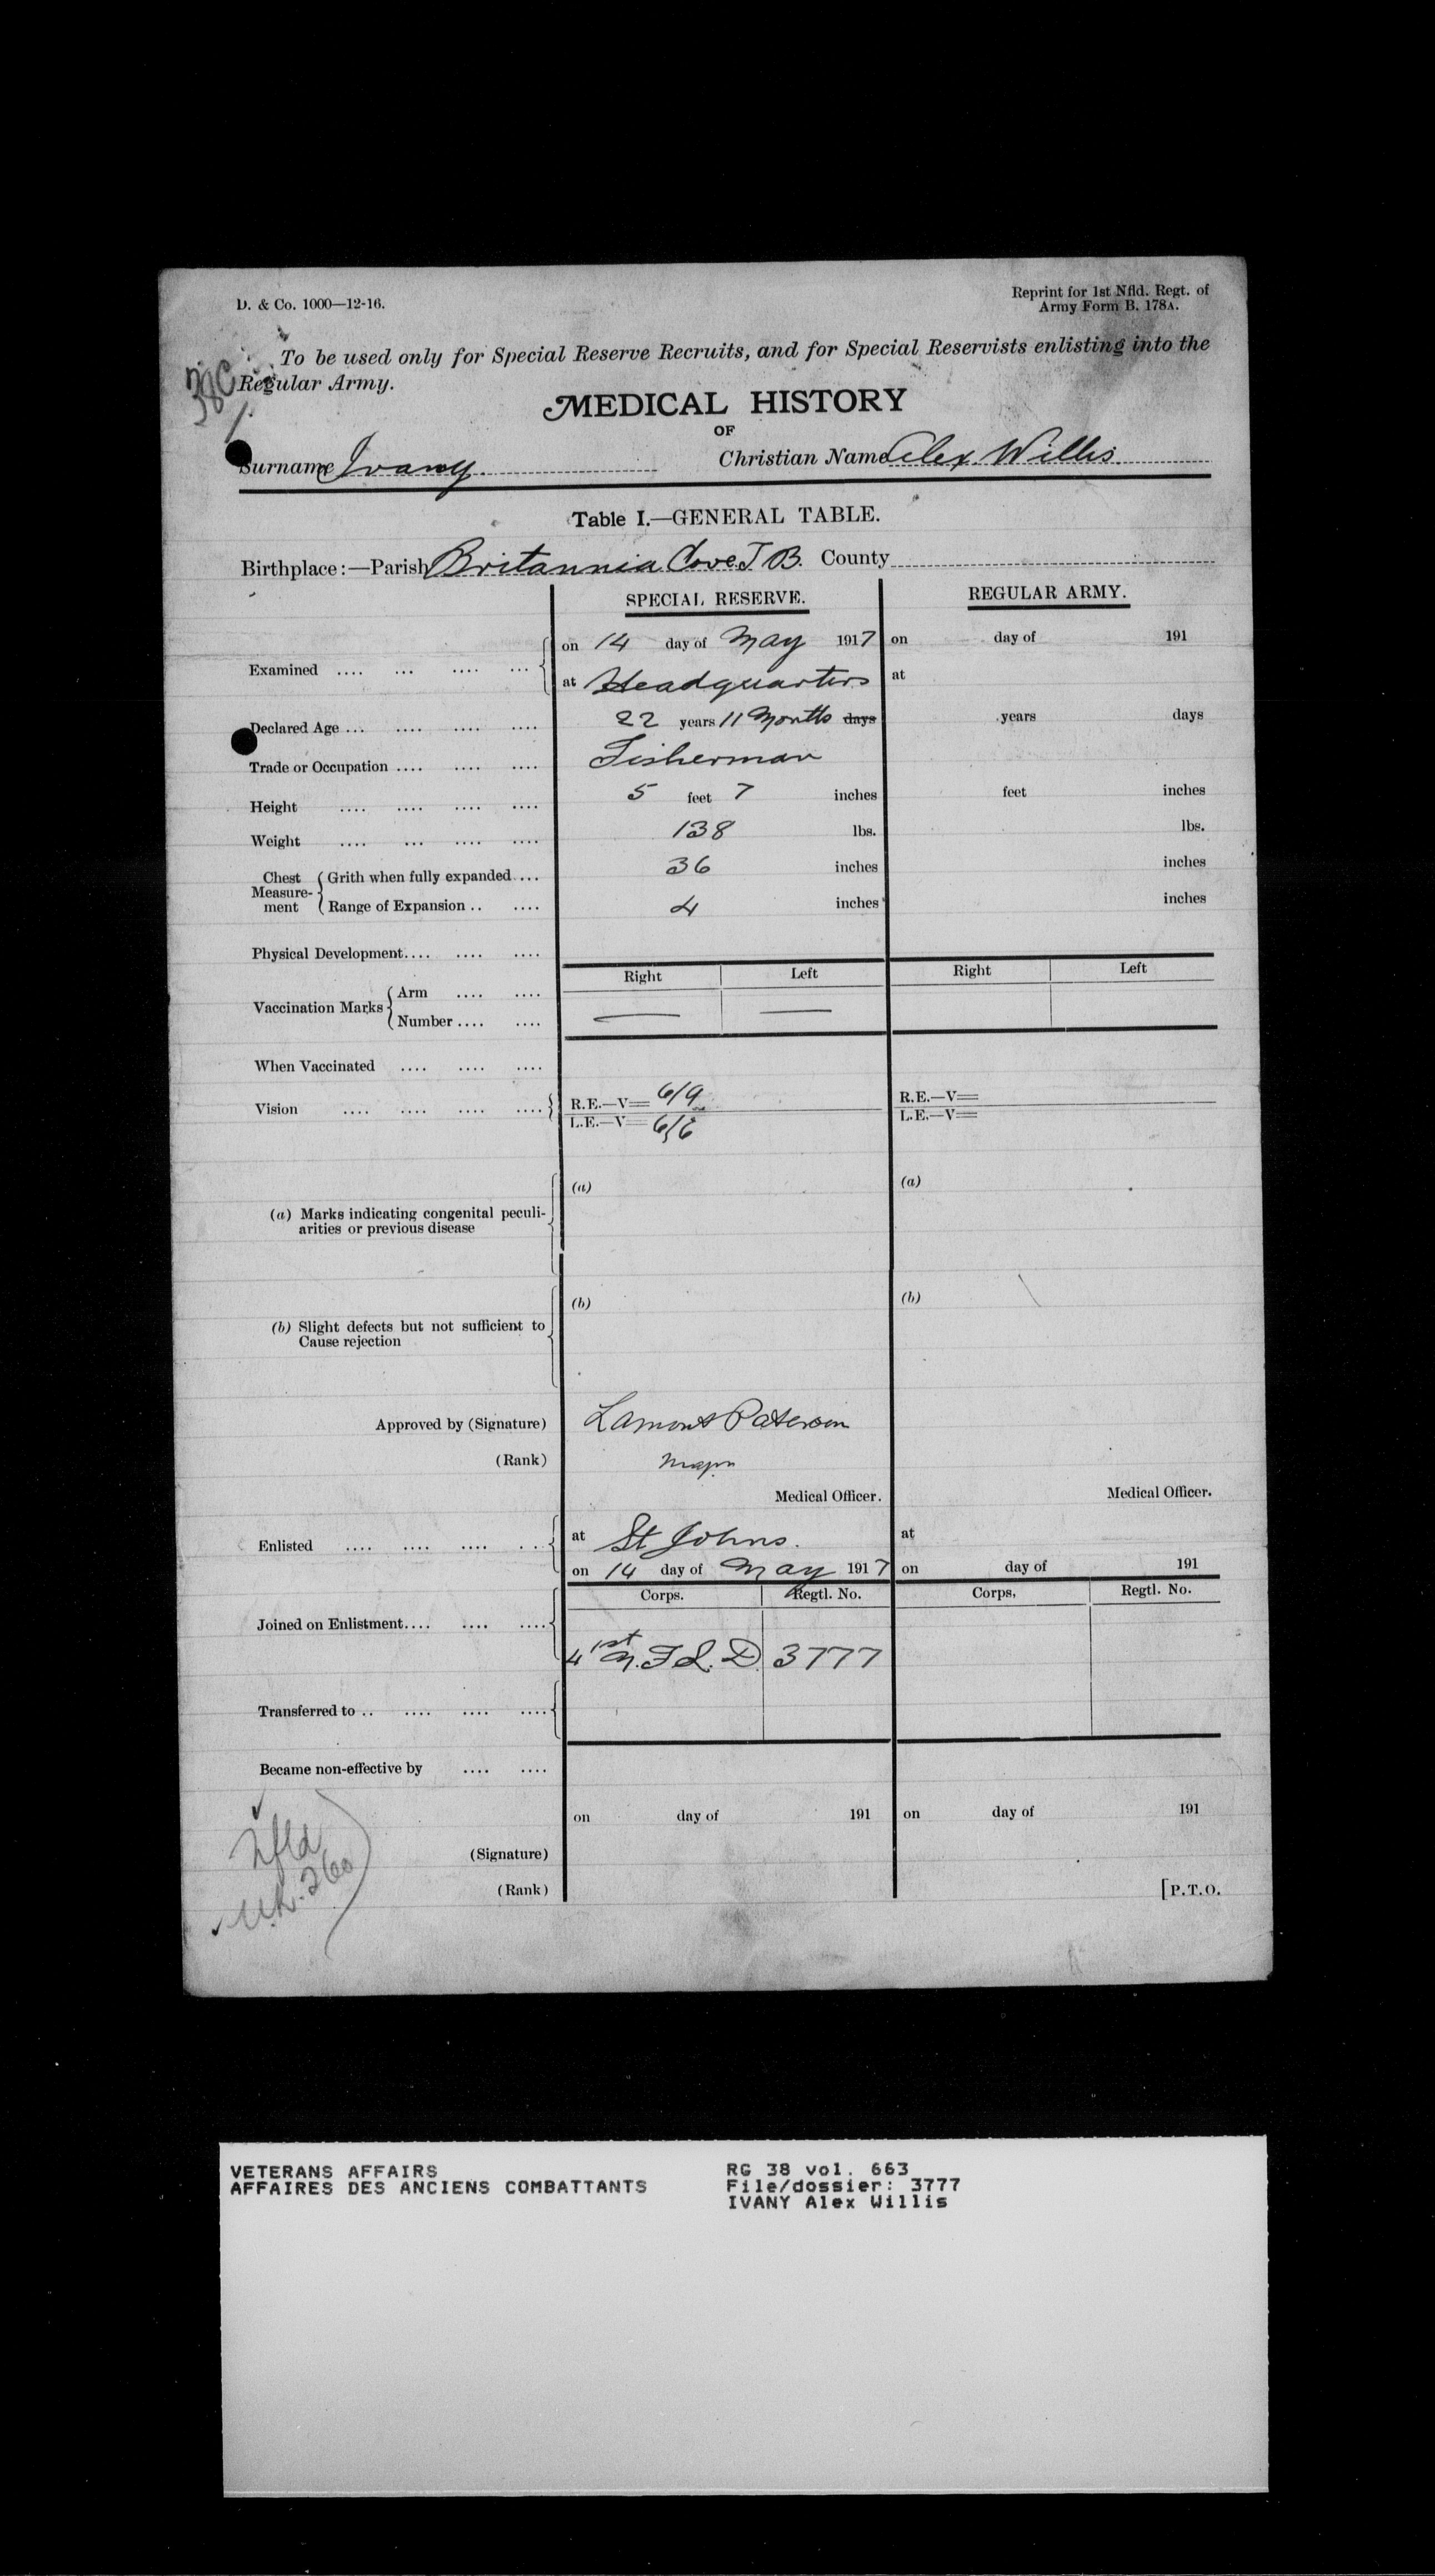 D. & Co. 1000—12-16.
Reprint for 1st Nfld. Regt. of
Army Form B. 178A.
To be used only for Special Reserve Recruits, and for Special Reservists enlisting into the
Regular Army.
MEDICAL HISTORY
OF
Surname Ivany. Christian Name Alex. Willis.
Table I.—GENERAL TABLE.
Birthplace:—Parish Britannia Cove T B. County
SPECIAL RESERVE. REGULAR ARMY.
Examined .... ... .... ... on 14 day of May 1917 on day of 191
at Headquarters at
Declared Age ... .... .... .... 22 years 11 Months days years days
Trade or Occupation .... .... .... Fisherman
Height .... .... .... .... 5 feet 7 inches feet inches
Weight .... ... .... .... 138 lbs. lbs.
Chest Measure-ment Grith when fully expanded.... 36 inches inches
Range of Expansion .. .... 4 inches inches
Physical Development.... .... ....
Right Left Right Left
Vaccination Marks Arm .... ....
Number .... .... — —
When Vaccinated .... .... ....
Vision .... .... .... .... R.E.—V= 6/9 R.E.—V=
L.E.—V= 6/6 L.E.—V=
(a) Marks indicating congenital peculi-
arities or previous disease (a) (a)
(b) Slight defects but not sufficient to
Cause rejection (b) (b)
Approved by (Signature) Lamont Paterson
(Rank) Major
Medical Officer. Medical Officer.
Enlisted .... .... .... .. at St Johns. at
on 14 day of May 1917 on day of 191
Corps. Regtl. No. Corps. Regtl. No.
Joined on Enlistment.... .... .... 1st N.F.L.D. 3777
Transferred to .. .... .... ....
Became non-effective by .... ....
on day of 191 on day of 191
Nfld
(Signature)
(Rank)
[P.T.O.
VETERANS AFFAIRS
AFFAIRES DES ANCIENS COMBATTANTS
RG 38 vol. 663
File/dossier: 3777
IVANY Alex Willis